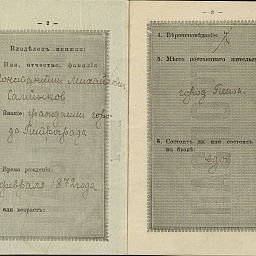 — 2 —
Владѣлецъ книжки:
Имя, отчество, фамилія:
Константинъ Михайлов
Салтыков
Званіе: гражданин горо-
да Петрограда
Время рожденія:
февраля 1872 года
или возрастъ:
4. Вѣроисповѣданіе:
5. Мѣсто постояннаго жительс
город
6. Состоитъ ли или состоялъ
въ бракѣ:
вдов